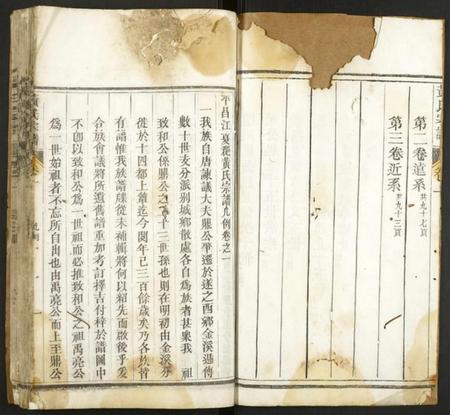 第二卷遠系 共九十七頁
第三卷近系 共九十三頁
平昌江夏郡黃氏宗譜凡例卷之一
一我族自唐諫議大夫鼎公平遷於遂之西鄉金溪遞傳
數十世支分派別城鄉散處各自為族者甚衆我 祖
致和公係鼎公之二十三世孫也則在明初由金溪分
徙於十四都上簟迄今閱年已三百餘歲矣乃各族皆
有譜惟我族譜牒從未補輯將何以紹先而啟後乎爰
合族會議將所遺舊譜重加考訂擇吉付梓於譜圖中
不即以致和公為一世祖而必推致和公之祖禹亮公
為一世始祖者不忘所自出也由禹亮公而上至鼎公